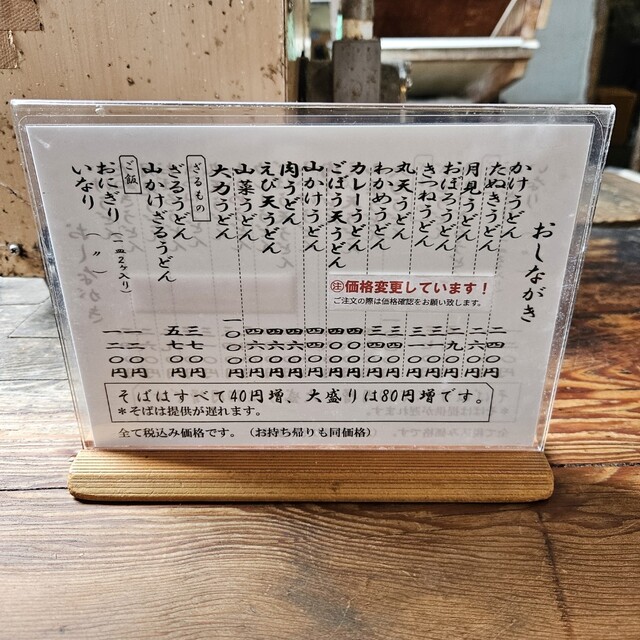 おしながき
かけうどん 二四〇円
たぬきうどん 二六〇円
月見うどん 二九〇円
おぼろうどん 三一〇円
きつねうどん 三一〇円
丸天うどん 三四〇円
わかめうどん 三四〇円
カレーうどん 四〇〇円
ごぼう天うどん 四〇〇円
山かけうどん 四四〇円
肉うどん 四六〇円
えび天うどん 四六〇円
山菜うどん 四六〇円
大力うどん 一〇〇〇円
ざるもの
ざるうどん 三七〇円
山かけざるうどん 五七〇円
ご飯
おにぎり(一皿2ヶ入り) 一二〇円
いなり(〃) 一二〇円
注価格変更しています！
ご注文の際は価格確認をお願い致します。
そばはすべて40円増、大盛りは80円増です。
＊そばは提供が遅れます。
全て税込み価格です。(お持ち帰りも同価格)